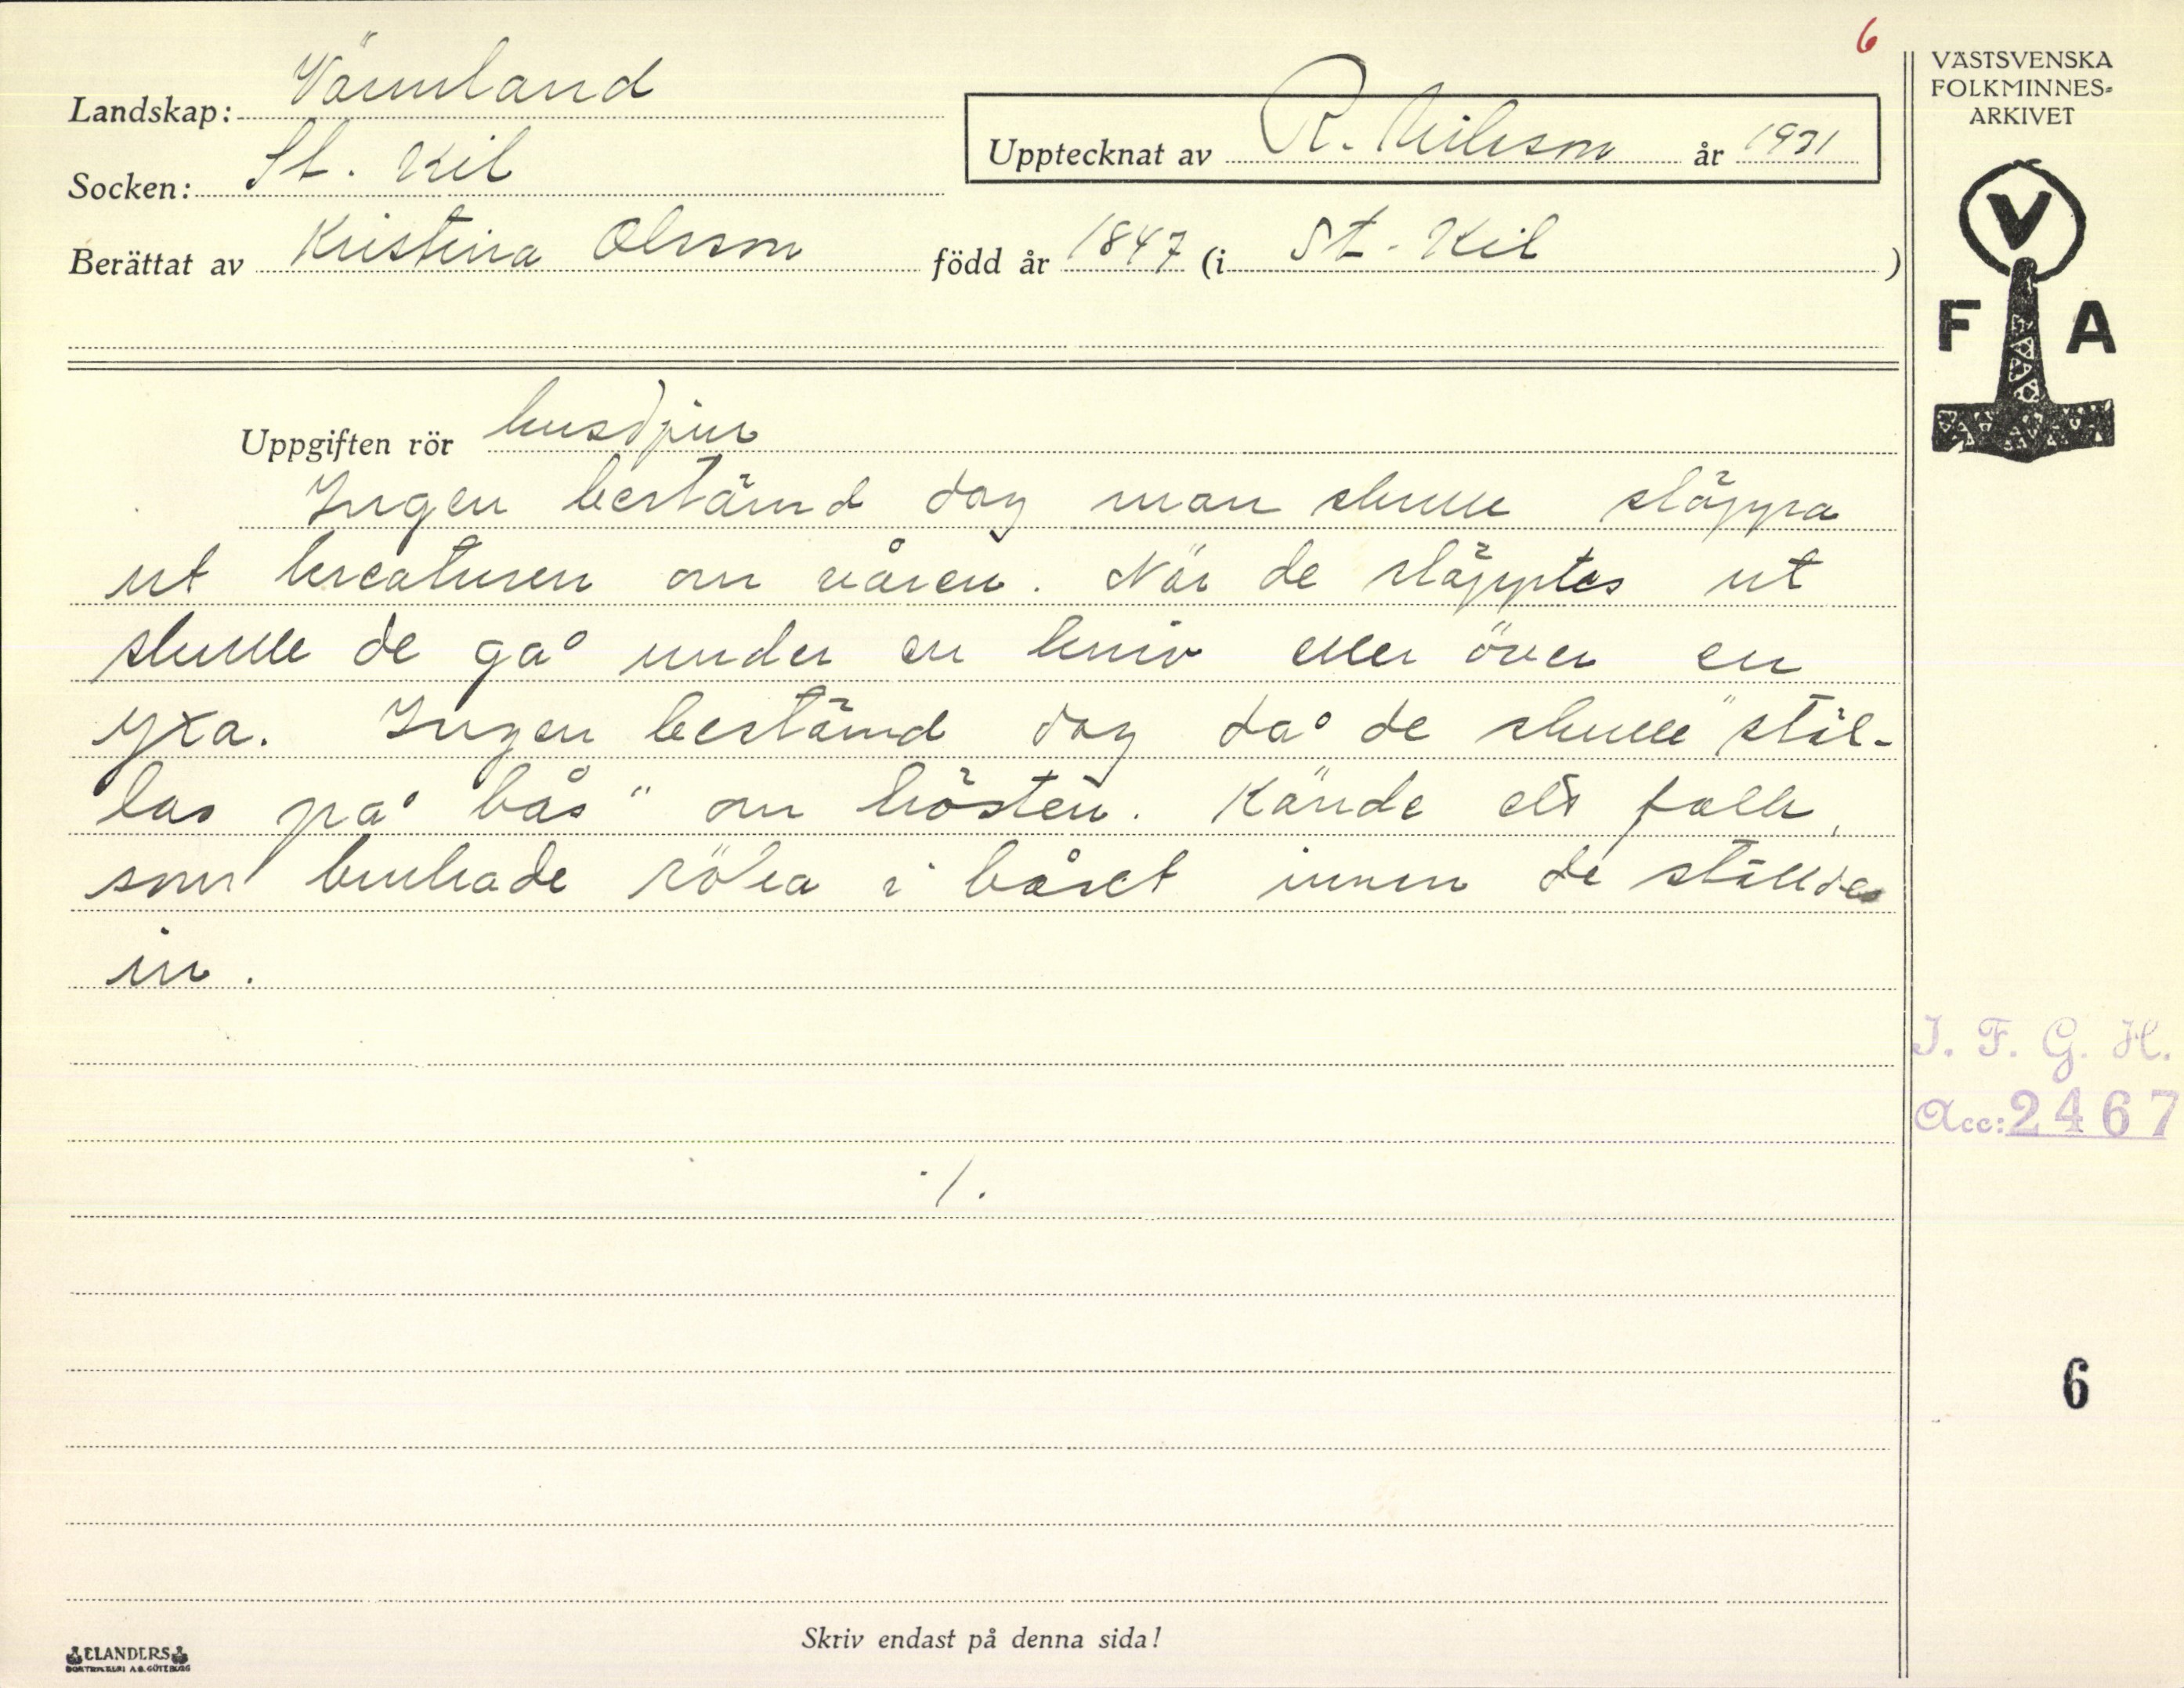 6
VÄSTSVENSKA
FOLKMINNES-
ARKIVET
Landskap: Värmland
Upptecknat av R. Nilsson år 1931
Socken: St. Kil
Berättat av Kristina Olsson född år 1847 (i St. Kil)
V
F A
Uppgiften rör husdjur
Ingen bestämd dag man skulle släppa
ut kreaturen om våren. När de släpptes ut
skulle de gå under en kniv eller över en
yxa. Ingen bestämd dag då de skulle "stäl-
las på bås" om hösten. Kände ett folk,
som brukade röka i båset innan de ställdes
in.
I. F. G. H.
Acc: 2467
./.
6
Skriv endast på denna sida!
ELANDERS
BOKTRYCKERI A.B. GÖTEBORG